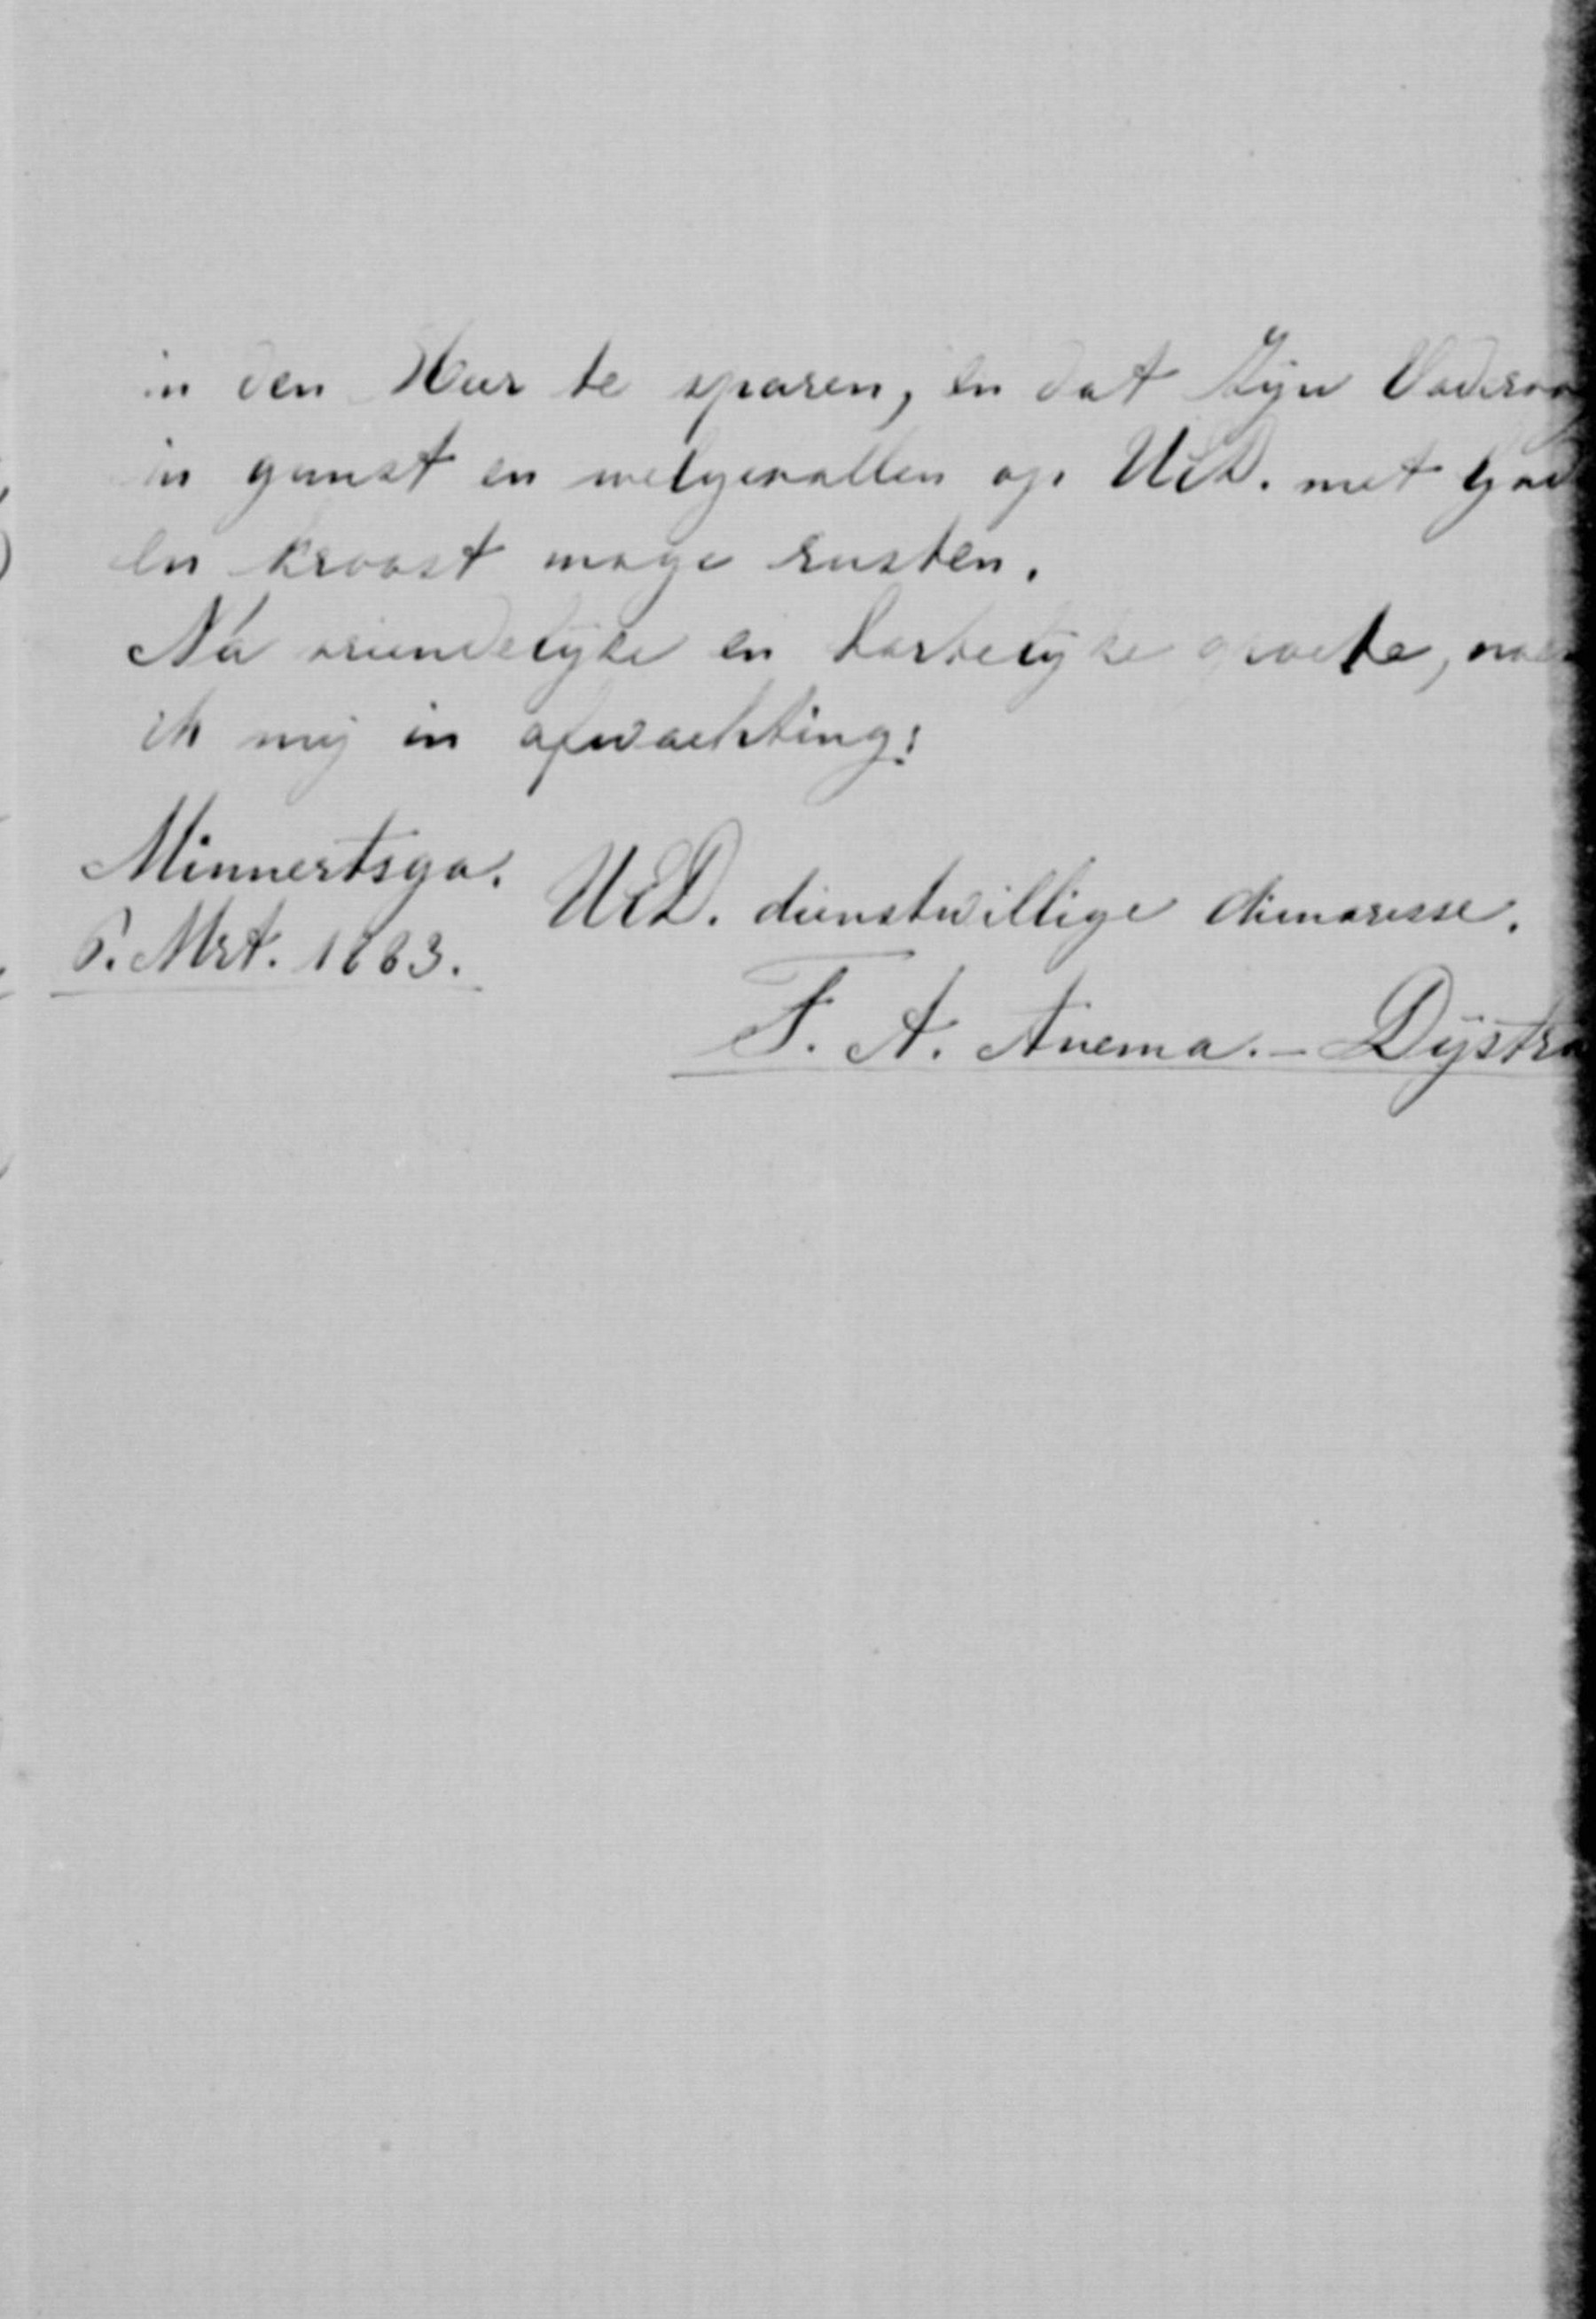 in den Heer te sparen, en dat Zijn Vaderoog
in gunst en welgevallen op UEd. met Gade
en kroost moge rusten.
Na vriendelijke en hartelijke groete, noem
ik mij in afwachting:
Minnertsga. UEd. dienstwillige dienaresse.
6. Mrt. 1883.
F. A. Anema. - Dijstra